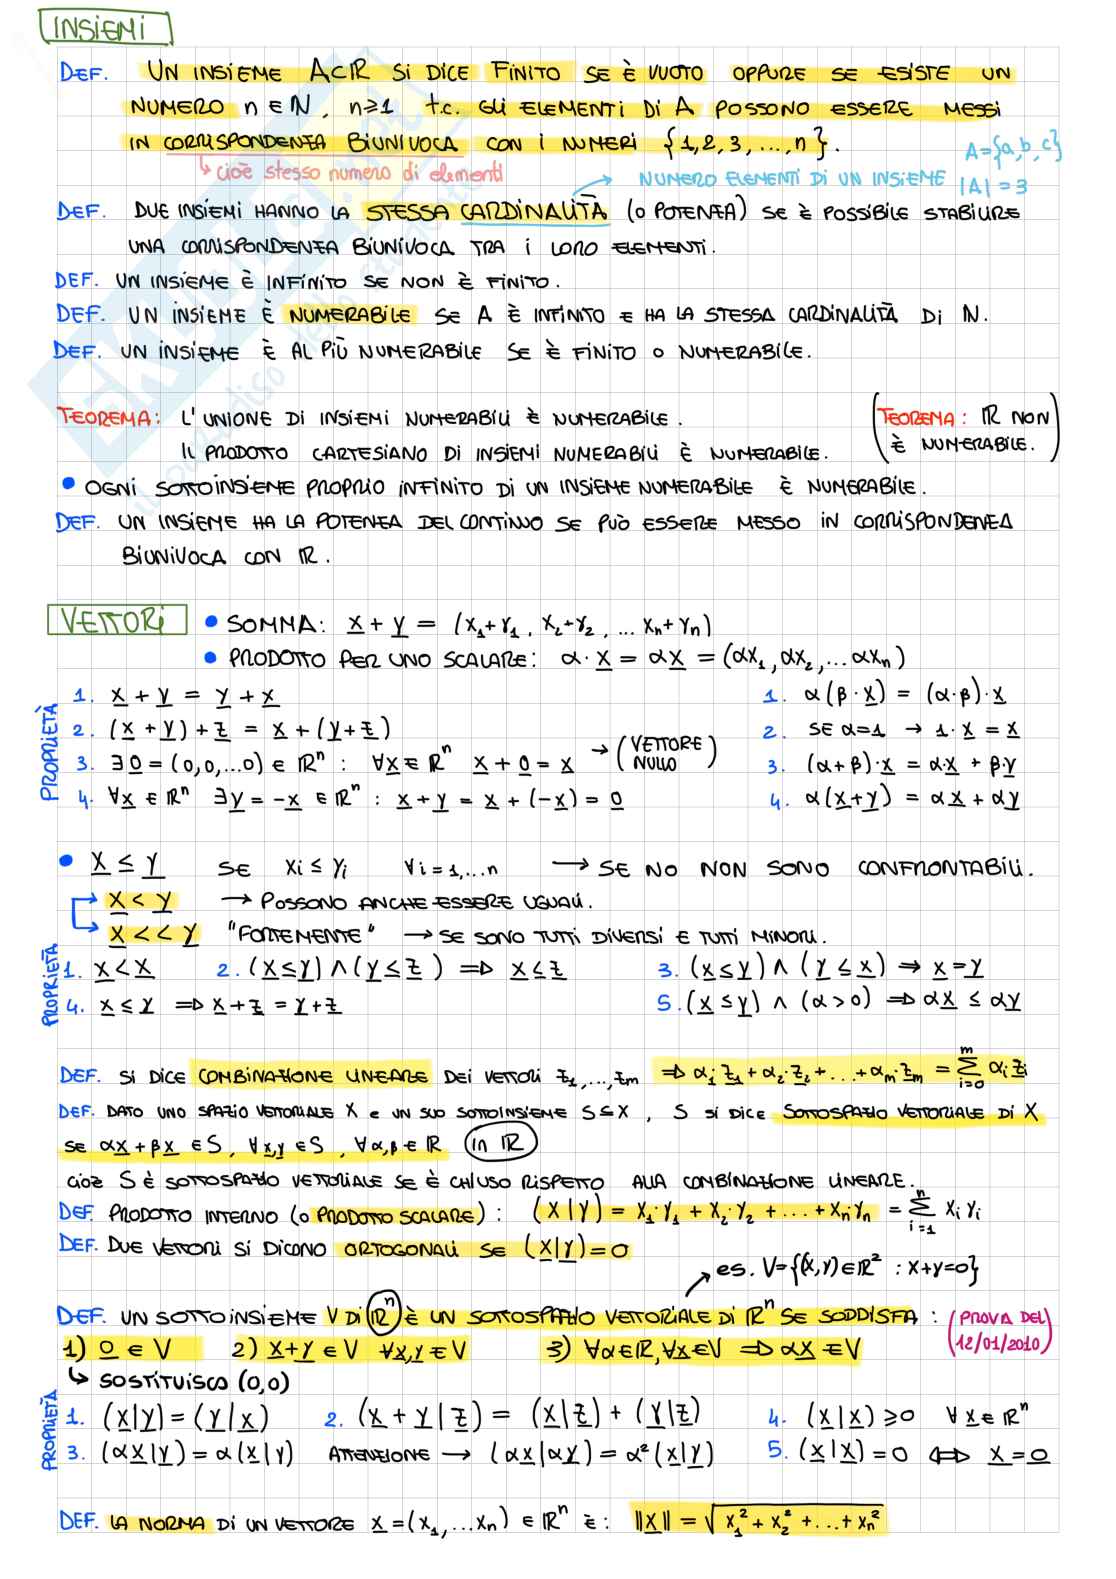 INSIEMI
DEF. UN INSIEME A⊂ℝ SI DICE FINITO SE È VUOTO OPPURE SE ESISTE UN
NUMERO n ∈ ℕ, n≥1 t.c. GLI ELEMENTI DI A POSSONO ESSERE MESSI
IN CORRISPONDENZA BIUNIVOCA CON I NUMERI {1,2,3,...,n}.
A={a,b,c}
↳ cioè stesso numero di elementi
→ NUMERO ELEMENTI DI UN INSIEME |A|=3
DEF. DUE INSIEMI HANNO LA STESSA CARDINALITÀ (O POTENZA) SE È POSSIBILE STABILIRE
UNA CORRISPONDENZA BIUNIVOCA TRA I LORO ELEMENTI.
DEF. UN INSIEME È INFINITO SE NON È FINITO.
DEF. UN INSIEME È NUMERABILE SE A È INFINITO E HA LA STESSA CARDINALITÀ DI ℕ.
DEF. UN INSIEME È AL PIÙ NUMERABILE SE È FINITO O NUMERABILE.
TEOREMA: L'UNIONE DI INSIEMI NUMERABILI È NUMERABILE. (TEOREMA: ℝ NON
IL PRODOTTO CARTESIANO DI INSIEMI NUMERABILI È NUMERABILE. È NUMERABILE.)
• OGNI SOTTOINSIEME PROPRIO INFINITO DI UN INSIEME NUMERABILE È NUMERABILE.
DEF. UN INSIEME HA LA POTENZA DEL CONTINUO SE PUÒ ESSERE MESSO IN CORRISPONDENZA
BIUNIVOCA CON ℝ.
VETTORI • SOMMA: x̲ + y̲ = (x₁+y₁, x₂+y₂, ... xₙ+yₙ)
• PRODOTTO PER UNO SCALARE: α·x̲ = αx̲ = (αx₁, αx₂, ... αxₙ)
PROPRIETÀ
1. x̲ + y̲ = y̲ + x̲ 1. α(β·x̲) = (α·β)·x̲
2. (x̲ + y̲) + z̲ = x̲ + (y̲+z̲) 2. SE α=1 → 1·x̲ = x̲
3. ∃ 0̲ = (0,0,...0) ∈ ℝⁿ : ∀x̲ ∈ ℝⁿ x̲ + 0̲ = x̲ → (VETTORE NULLO) 3. (α+β)·x̲ = α·x̲ + β·y̲
4. ∀x̲ ∈ ℝⁿ ∃y̲ = -x̲ ∈ ℝⁿ : x̲ + y̲ = x̲ + (-x̲) = 0̲ 4. α(x̲+y̲) = αx̲ + αy̲
• x̲ ≤ y̲ SE xi ≤ yi ∀i=1,...n → SE NO NON SONO CONFRONTABILI.
x̲ < y̲ → POSSONO ANCHE ESSERE UGUALI.
x̲ << y̲ "FORTEMENTE" → SE SONO TUTTI DIVERSI E TUTTI MINORI.
PROPRIETÀ
1. x̲ < x̲ 2. (x̲≤y̲) ∧ (y̲≤z̲) ⇒ x̲ ≤ z̲ 3. (x̲≤y̲) ∧ (y̲≤x̲) ⇒ x̲=y̲
4. x̲ ≤ y̲ ⇒ x̲+z̲ = y̲+z̲ 5. (x̲≤y̲) ∧ (α>0) ⇒ αx̲ ≤ αy̲
DEF. SI DICE COMBINAZIONE LINEARE DEI VETTORI z̲₁,...,z̲m ⇒ α₁·z̲₁ + α₂·z̲₂ + ... + αm·z̲m = Σ(i=0, m) αi z̲i
DEF. DATO UNO SPAZIO VETTORIALE X E UN SUO SOTTOINSIEME S⊆X, S SI DICE SOTTOSPAZIO VETTORIALE DI X
SE αx̲ + βx̲ ∈ S, ∀x̲,y̲ ∈ S, ∀α,β ∈ ℝ (in ℝ)
CIOÈ S È SOTTOSPAZIO VETTORIALE SE È CHIUSO RISPETTO ALLA COMBINAZIONE LINEARE.
DEF. PRODOTTO INTERNO (O PRODOTTO SCALARE): (x̲|y̲) = x₁·y₁ + x₂·y₂ + ... + xₙ·yₙ = Σ(i=1, n) xi yi
DEF. DUE VETTORI SI DICONO ORTOGONALI SE (x̲|y̲)=0
es. V={(x,y)∈ℝ² : x+y=0}
DEF. UN SOTTOINSIEME V DI ℝⁿ È UN SOTTOSPAZIO VETTORIALE DI ℝⁿ SE SODDISFA: (PROVA DEL
1) 0̲ ∈ V 2) x̲+y̲ ∈ V ∀x̲,y̲ ∈ V 3) ∀α∈ℝ, ∀x̲∈V ⇒ αx̲ ∈ V 12/01/2010)
↳ SOSTITUISCO (0,0)
PROPRIETÀ
1. (x̲|y̲) = (y̲|x̲) 2. (x̲ + y̲|z̲) = (x̲|z̲) + (y̲|z̲) 4. (x̲|x̲) ≥ 0 ∀x̲ ∈ ℝⁿ
3. (αx̲|y̲) = α(x̲|y̲) ATTENZIONE → (αx̲|αy̲) = α²(x̲|y̲) 5. (x̲|x̲) = 0 ⇔ x̲ = 0̲
DEF. LA NORMA DI UN VETTORE x̲ = (x₁,...xₙ) ∈ ℝⁿ È: ‖x̲‖ = √(x₁² + x₂² + ... + xₙ²)